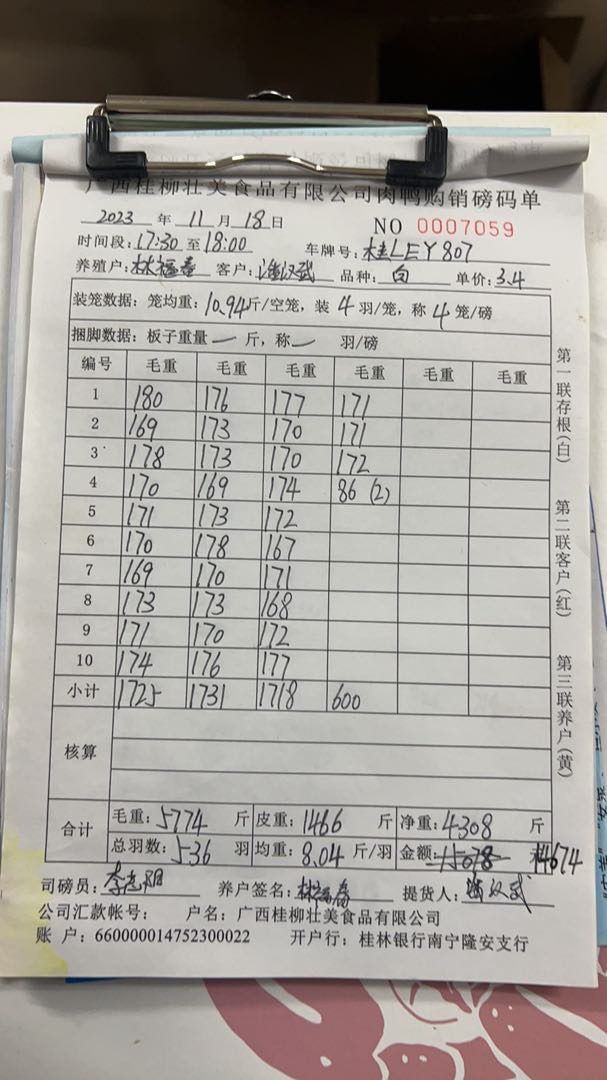 广西桂柳壮美食品有限公司肉鸭购销磅码单
2023 年 11 月 18 日 NO 0007059
时间段: 17:30 至 18:00 车牌号: 桂LEY807
养殖户: 林福春 客户: 潘汉武 品种: 白 单价: 3.4
装笼数据: 笼均重: 10.94 斤/空笼, 装 4 羽/笼, 称 4 笼/磅
捆脚数据: 板子重量 一 斤, 称 一 羽/磅
编号 毛重 毛重 毛重 毛重 毛重 毛重
1 180 176 177 171
2 169 173 170 171
3 178 173 170 172
4 170 169 174 86 (2)
5 171 173 172
6 170 178 167
7 169 170 171
8 173 173 168
9 171 170 172
10 174 176 177
小计 1725 1731 1718 600
核算
合计 毛重: 5774 斤 皮重: 1466 斤 净重: 4308 斤
总羽数: 536 羽 均重: 8.04 斤/羽 金额: 15078 14674
司磅员: 李 阳 养户签名: 林福春 提货人: 潘汉武
公司汇款帐号: 户名: 广西桂柳壮美食品有限公司
账 户: 660000014752300022 开户行: 桂林银行南宁隆安支行
第一联存根(白)
第二联客户(红)
第三联养户(黄)